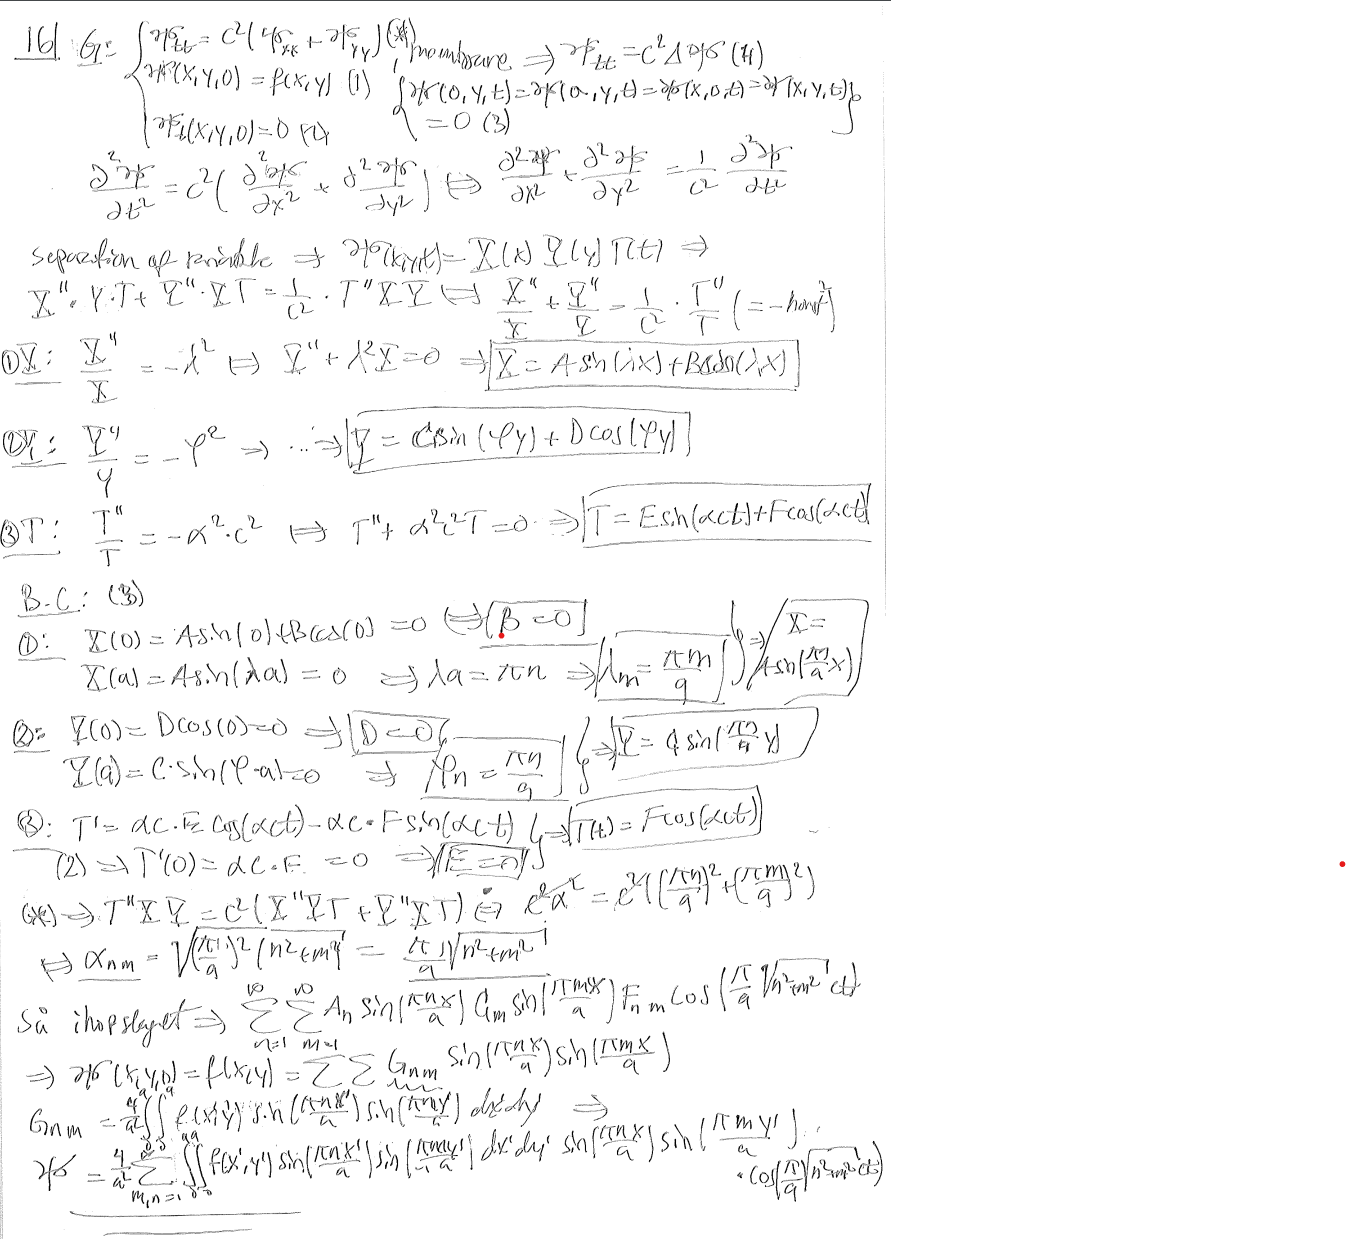 16) G: { ψ_tt = c²(ψ_xx + ψ_yy) (*), membrane ⇒ ψ_tt = c²Δψ (4)
ψ(x,y,0) = f(x,y) (1) { ψ(0,y,t) = ψ(a,y,t) = ψ(x,0,t) = ψ(x,y,t) }
ψ_t(x,y,0) = 0 (2) = 0 (3)
∂²ψ/∂t² = c²(∂²ψ/∂x² + ∂²ψ/∂y²) ⇔ ∂²ψ/∂x² + ∂²ψ/∂y² = 1/c² ∂²ψ/∂t²
separation of variable ⇒ ψ(x,y,t) = X(x) Y(y) T(t) ⇒
X''·Y·T + Y''·XT = 1/c² · T''XY ⇔ X''/X + Y''/Y = 1/c² · T''/T (= -konst²)
① X: X''/X = -λ² ⇔ X'' + λ²X = 0 ⇒ X = A sin(λx) + B cos(λx)
② Y: Y''/Y = -φ² ⇒ ... ⇒ Y = C sin(φy) + D cos(φy)
③ T: T''/T = -α²·c² ⇔ T'' + α²c²T = 0 ⇒ T = E sin(αct) + F cos(αct)
B.C: (3)
①: X(0) = A sin(0) + B cos(0) = 0 ⇔ B = 0
X(a) = A sin(λa) = 0 ⇒ λa = πn ⇒ λm = πm/a } ⇒ X = A sin(πm/a x)
②: Y(0) = D cos(0) = 0 ⇒ D = 0
Y(a) = C·sin(φ·a) = 0 ⇒ φn = πn/a } ⇒ Y = C sin(πn/a y)
③: T' = αc·E cos(αct) - αc·F sin(αct) } ⇒ T(t) = F cos(αct)
(2) ⇒ T'(0) = αc·E = 0 ⇒ E = 0
(*) ⇒ T''XY = c²(X''YT + Y''XT) ⇔ c²α² = c²((πn/a)² + (πm/a)²)
⇔ αnm = √((π/a)²(n²+m²)) = π/a √(n²+m²)
Så ihopslaget ⇒ ∑_{n=1}^∞ ∑_{m=1}^∞ An sin(πnx/a) Cm sin(πmx/a) Fnm cos(π/a √(n²+m²) ct)
⇒ ψ(x,y,0) = f(x,y) = ∑∑ Gnm sin(πnx/a) sin(πmx/a)
Gnm = 4/a² ∫₀^a ∫₀^a f(x',y') sin(πnx'/a) sin(πmy'/a) dx'dy' ⇒
ψ = 4/a² ∑_{m,n=1}^∞ ∫₀^a ∫₀^a f(x',y') sin(πnx'/a) sin(πmy'/a) dx'dy' sin(πnx/a) sin(πmy'/a) ·
· cos(π/a √(n²+m²) ct)